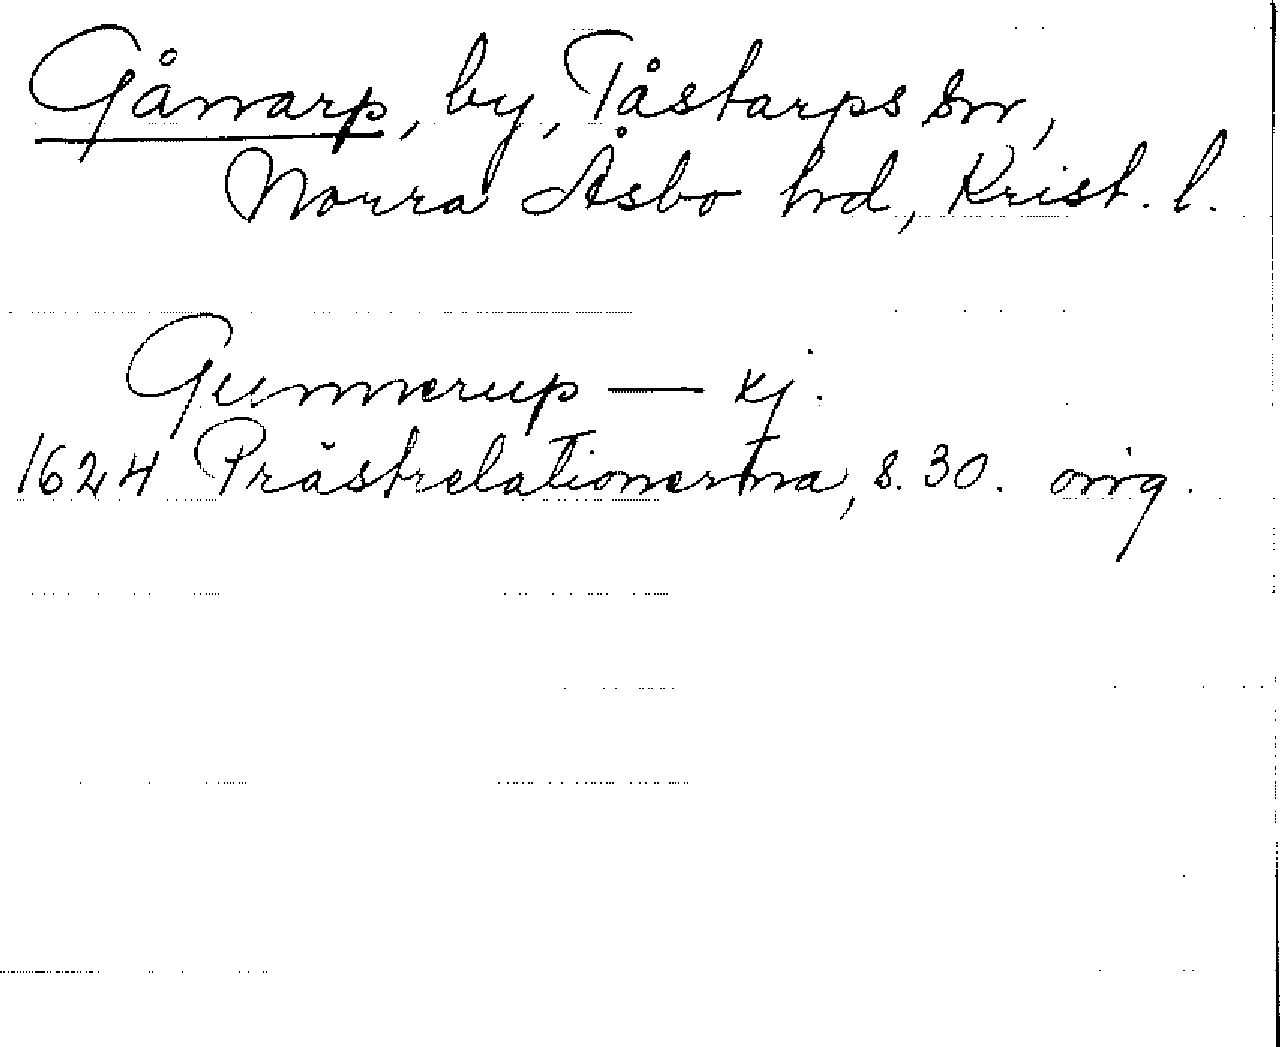 Gånarp, by, Tåstarps sn,
Norra Åsbo hd, Krist. l.
Gunnerup — kj.
1624 Prästrelationerna, s. 30. orig.